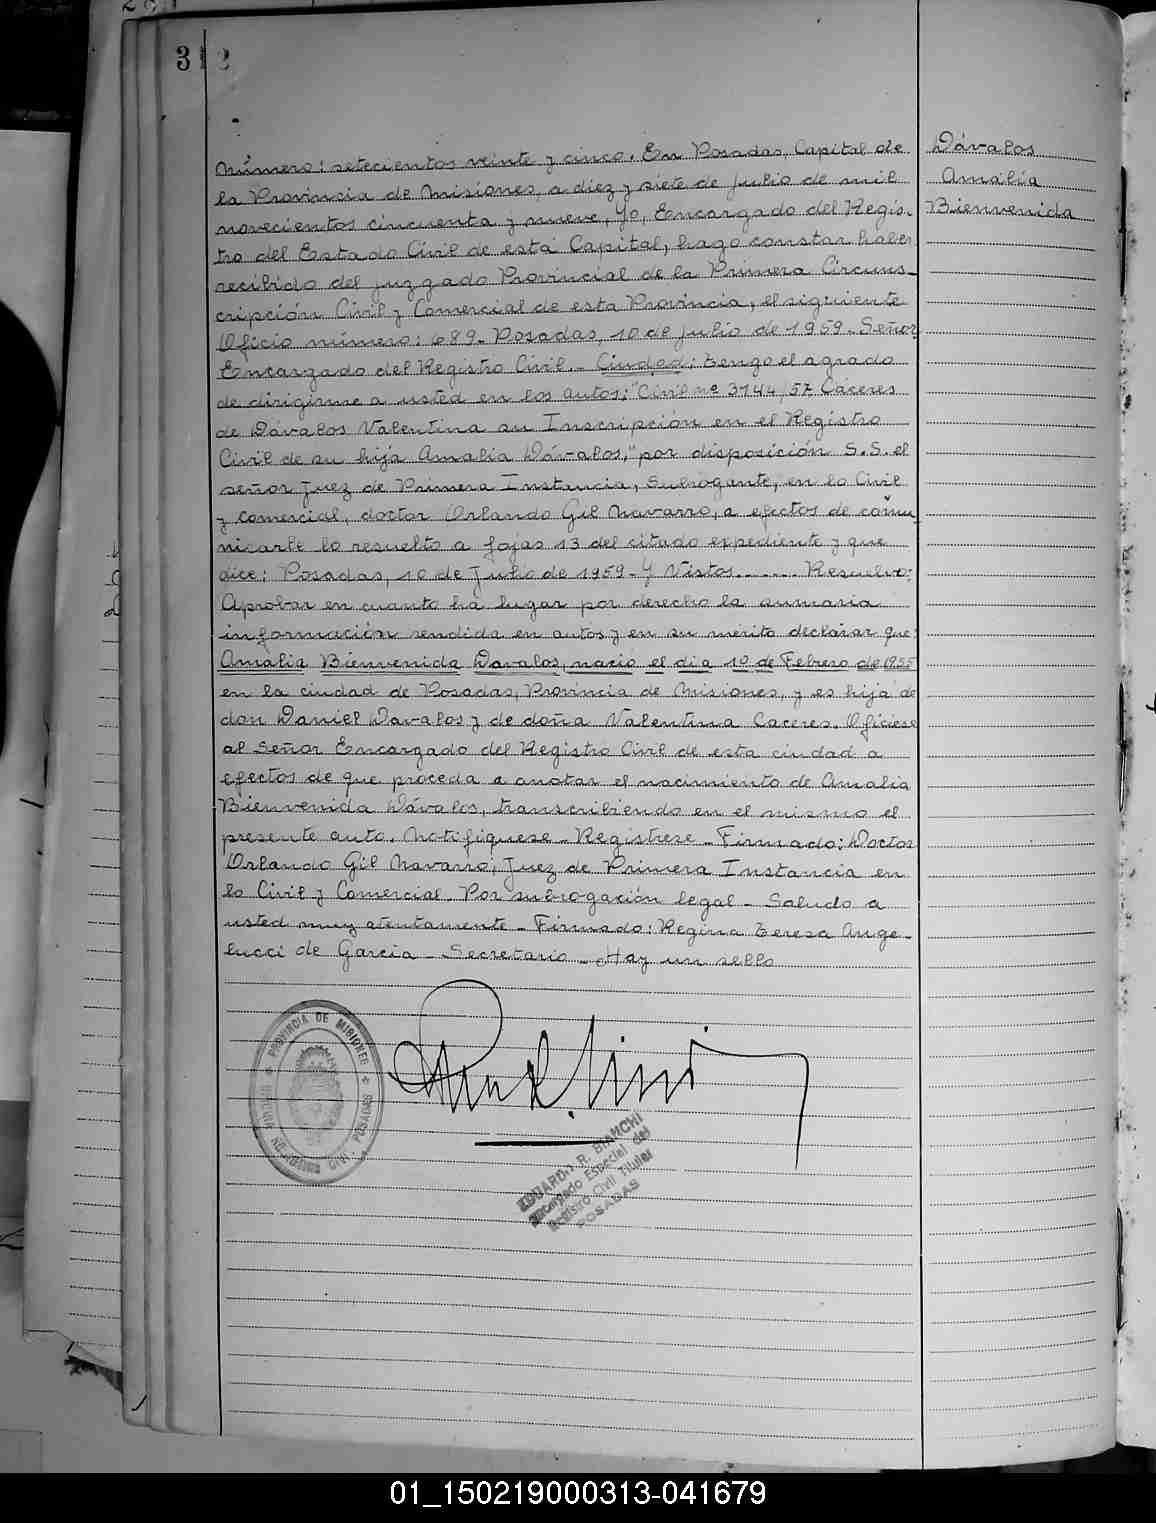 312
Número: setecientos veinte y cinco. En Posadas, Capital de
la Provincia de Misiones, a diez y siete de julio de mil
novecientos cincuenta y nueve, Yo, Encargado del Regis-
tro del Estado Civil de esta Capital, hago constar haber
recibido del juzgado Provincial de la Primera Circuns-
cripción Civil y Comercial de esta Provincia, el siguiente
Oficio número: 689. Posadas, 10 de julio de 1959. Señor
Encargado del Registro Civil. - Ciudad: tengo el agrado
de dirigirme a usted en los autos: "Civil nº 3144/57 Cáceres
de Dávalos Valentina su Inscripción en el Registro
Civil de su hija Amalia Dávalos," por disposición S.S. el
señor Juez de Primera Instancia, Subrogante, en lo Civil
y comercial, doctor Orlando Gil Navarro, a efectos de comu-
nicarle lo resuelto a fojas 13 del citado expediente y que
dice: Posadas, 10 de Julio de 1959 - Y Vistos....... Resuelvo:
Aprobar en cuanto ha lugar por derecho la sumaria
información rendida en autos y en su mérito declarar que:
Amalia Bienvenida Davalos, nacio el dia 10 de Febrero de 1955
en la ciudad de Posadas, Provincia de Misiones, y es hija de
don Daniel Davalos y de doña Valentina Caceres. Ofíciese
al Señor Encargado del Registro Civil de esta ciudad a
efectos de que proceda a anotar el nacimiento de Amalia
Bienvenida Dávalos, transcribiendo en el mismo el
presente auto. Notifiquese - Registrese - Firmado: Doctor
Orlando Gil Navarro, Juez de Primera Instancia en
lo Civil y Comercial. Por subrogación legal - Saludo a
usted muy atentamente - Firmado: Regina Teresa Ange-
lucci de Garcia - Secretario - Hay un sello
Dávalos
Amalia
Bienvenida
PROVINCIA DE MISIONES
POSADAS
EDUARDO R. BIANCHI
Encargado Especial del
Registro Civil Titular
POSADAS
01_150219000313-041679